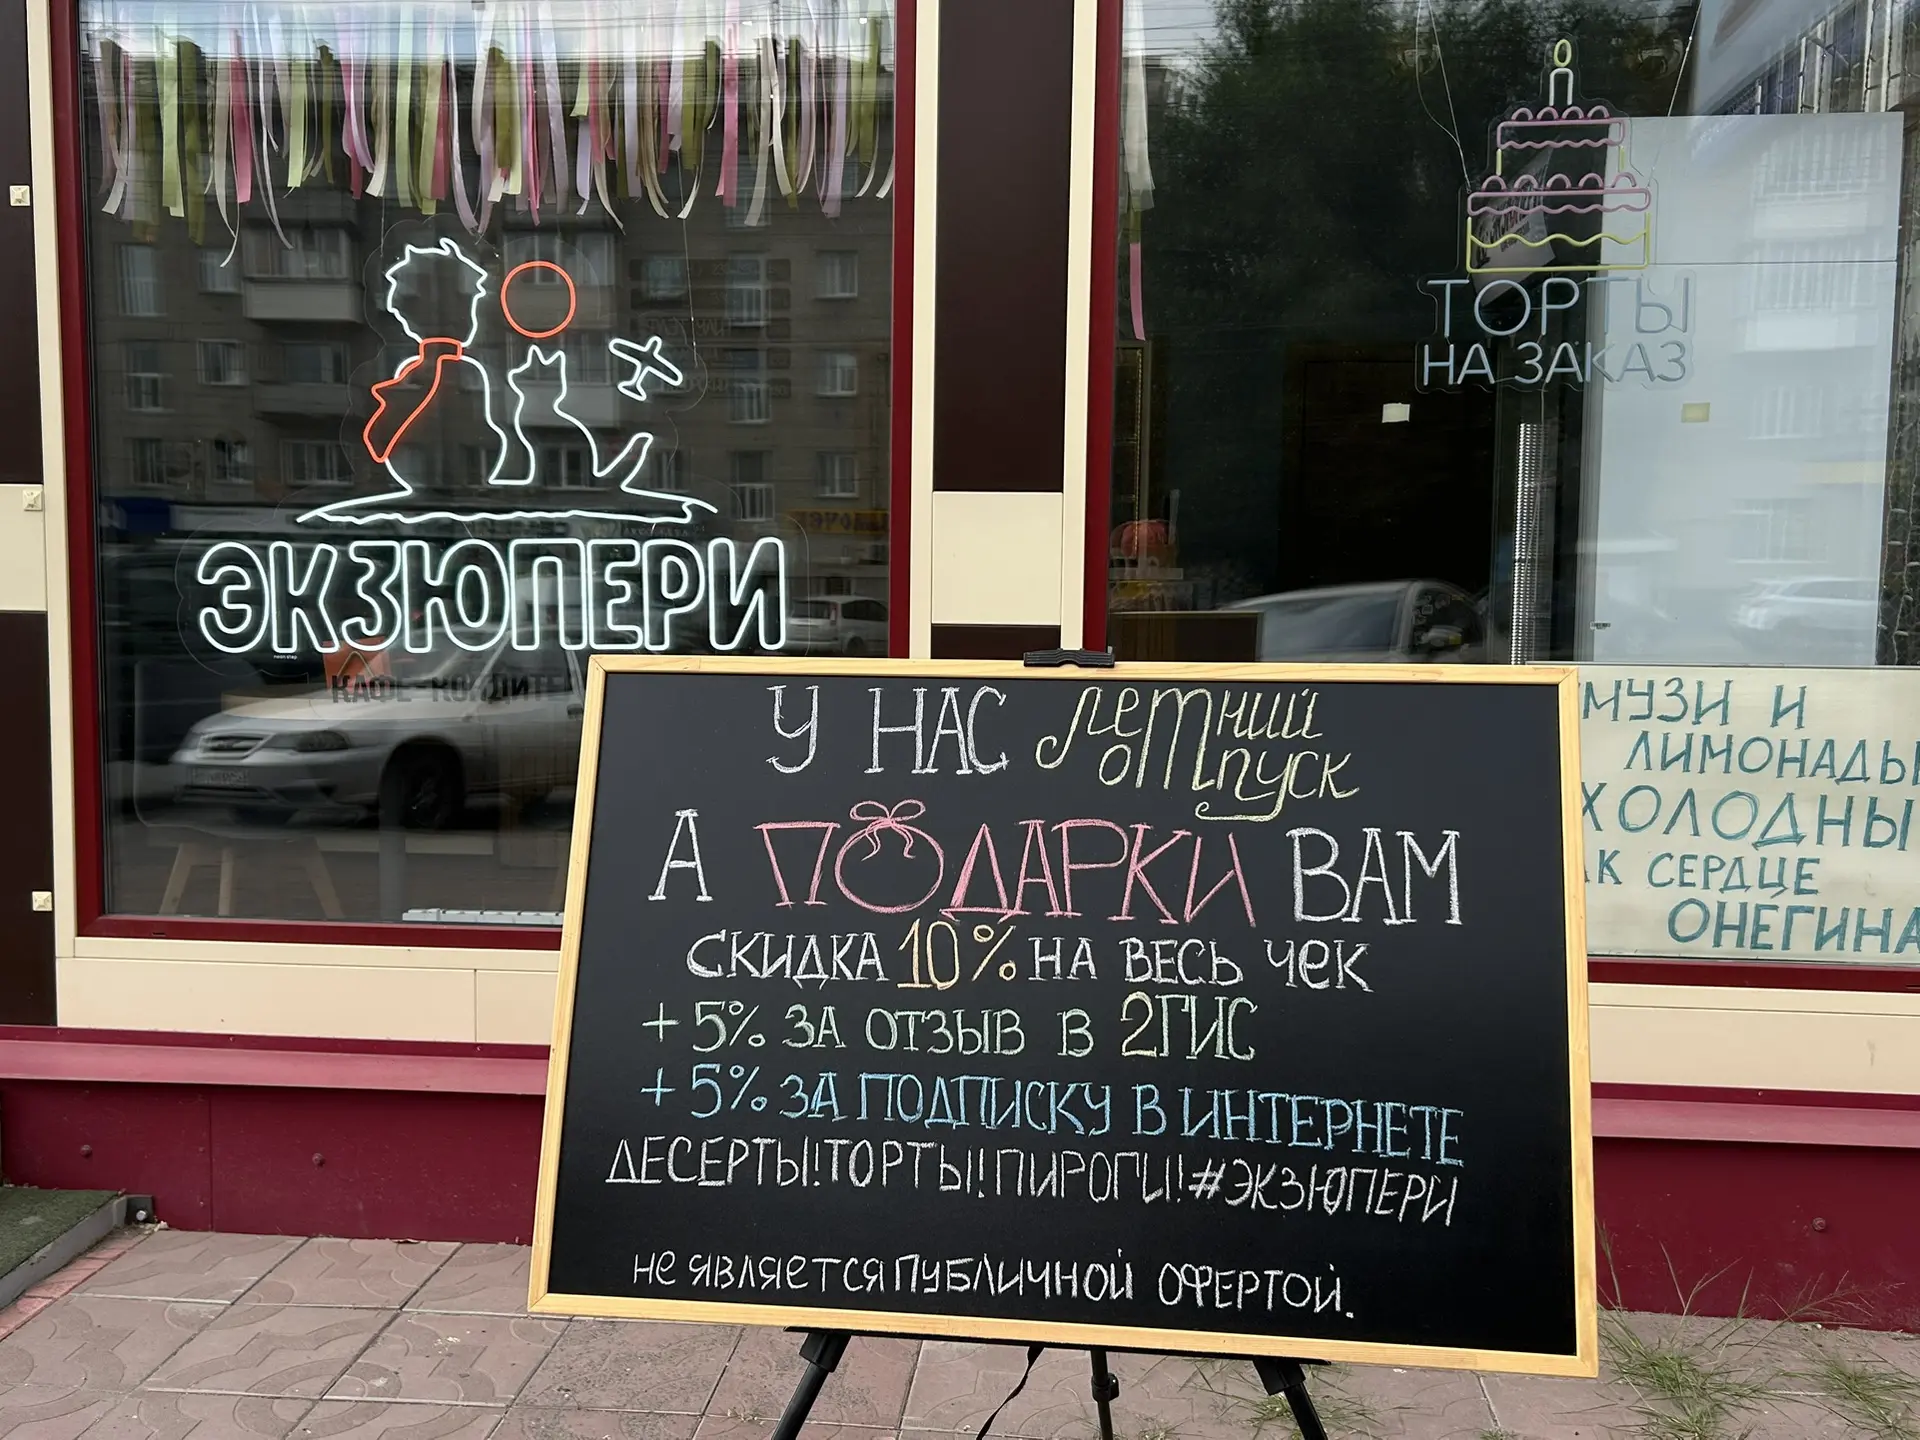 ЭКЗЮПЕРИ
ТОРТЫ
НА ЗАКАЗ
У НАС летний
отпуск
А ПОДАРКИ ВАМ
СКИДКА 10% НА ВЕСЬ ЧЕК
+5% ЗА ОТЗЫВ В 2ГИС
+5% ЗА ПОДПИСКУ В ИНТЕРНЕТЕ
ДЕСЕРТЫ!ТОРТЫ!ПИРОГИ!#ЭКЗЮПЕРИ
НЕ ЯВЛЯЕТСЯ ПУБЛИЧНОЙ ОФЕРТОЙ.
И
ЛИМОНАДЫ
ХОЛОДНЫ
СЕРДЦЕ
ОНЕГИНА